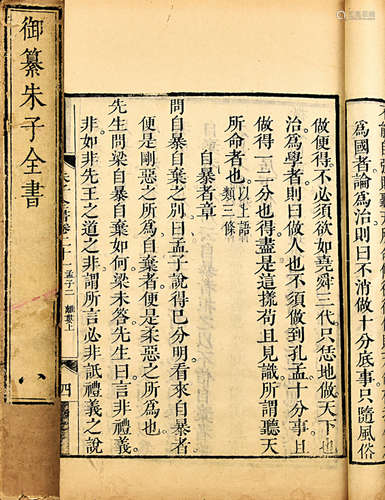 御纂朱子全書
八
爲國者論爲治則曰不消做十分底事只隨風俗
做便得不必須欲如堯舜三代只恁地做天下也
治爲學者則曰做人也不須做到孔孟十分事且
做得一二分也得盡是這樣苟且見識所謂聽天
所命者也以上語類三條
自暴者章
問自暴自棄之別曰孟子說得已分明看來自暴者
便是剛惡之所爲自棄者便是柔惡之所爲也
先生問梁自暴自棄如何梁未答先生曰言非禮義
非如非先王之道之非謂所言必非詆禮義之說
孟子二 離婁上
四